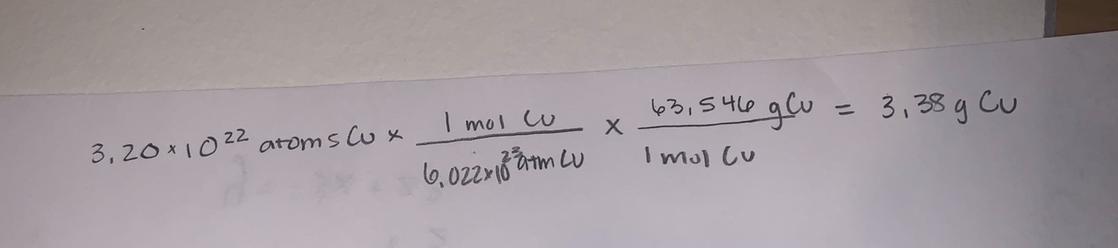 3.20×10²² atoms Cu × 1 mol Cu / 6.022×10²³ atm Cu × 63.546 g Cu / 1 mol Cu = 3.38 g Cu